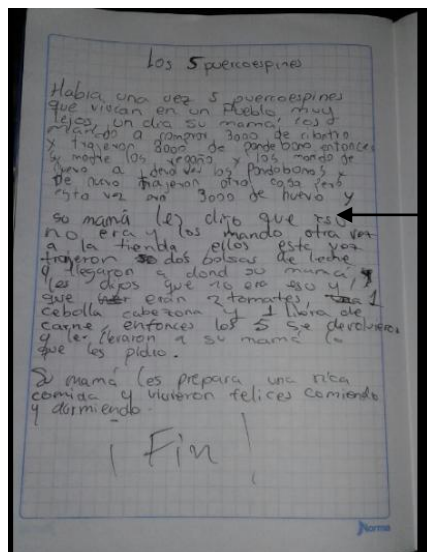 Los 5 puercoespines
Había una vez 5 puercoespines
que vivían en un Pueblo muy
lejos, un día su mamá los
mandado a comprar 3000 de cilantro
y trajeron 8000 de pandebono entonces
su madre los regaño y los mando de
nuevo a devolver los pandebonos y
De nuevo trajeron otra cosa pero
esta vez era 3000 de huevo y
so mamá lez dijo que eso
no era y los mando otra vez
a la tienda ellos esta vez
trajeron dos bolsas de leche
y llegaron a dond su mamá y
les dijos que no era eso y
que eran 2 tomates, 1
cebolla cabezona y 1 libra de
carne, entonces los 5 se devolvieron
y le llevaron a su mamá lo
que les pidio.
Su mamá les prepara una rica
comida y vivieron felices comiendo
y durmiendo.
¡Fin!
Norma